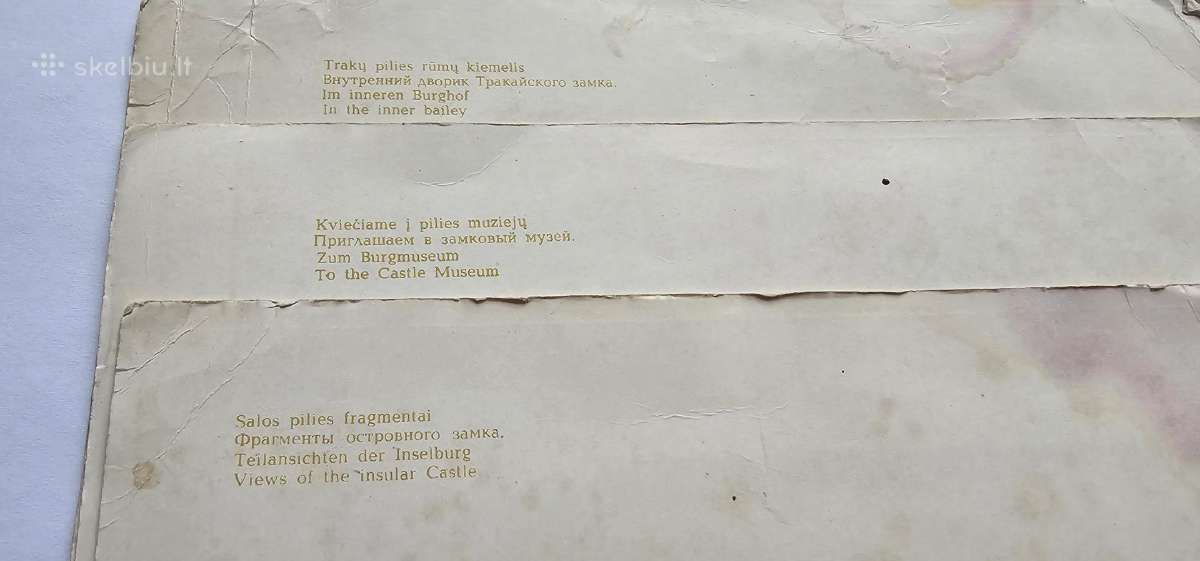 skelbiu.lt
Trakų pilies rūmų kiemelis
Внутренний дворик Тракайского замка.
Im inneren Burghof
In the inner bailey
Kviečiame į pilies muziejų
Приглашаем в замковый музей.
Zum Burgmuseum
To the Castle Museum
Salos pilies fragmentai
Фрагменты островного замка.
Teilansichten der Inselburg
Views of the insular Castle